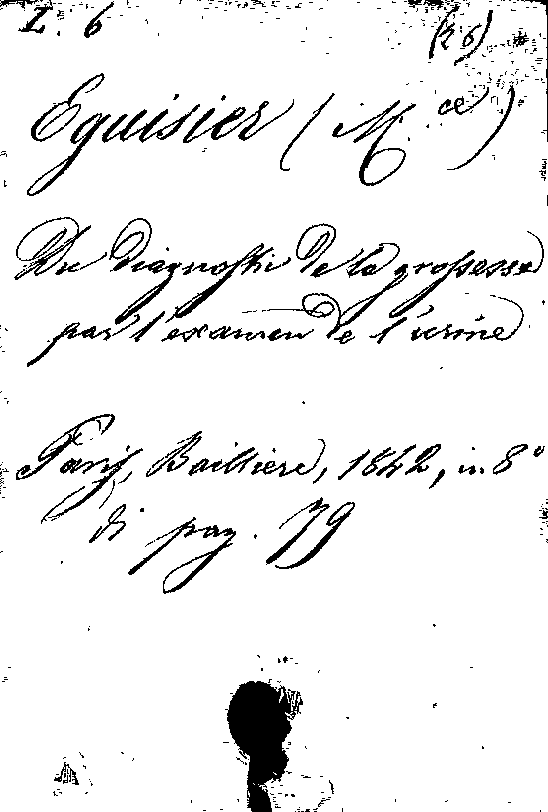 Z. 6
(26)
Eguisier (M.ce)
Du diagnostic de la grossesse
par l'examen de l'urine
Paris, Baillière, 1842, in 8°
di pag. 79